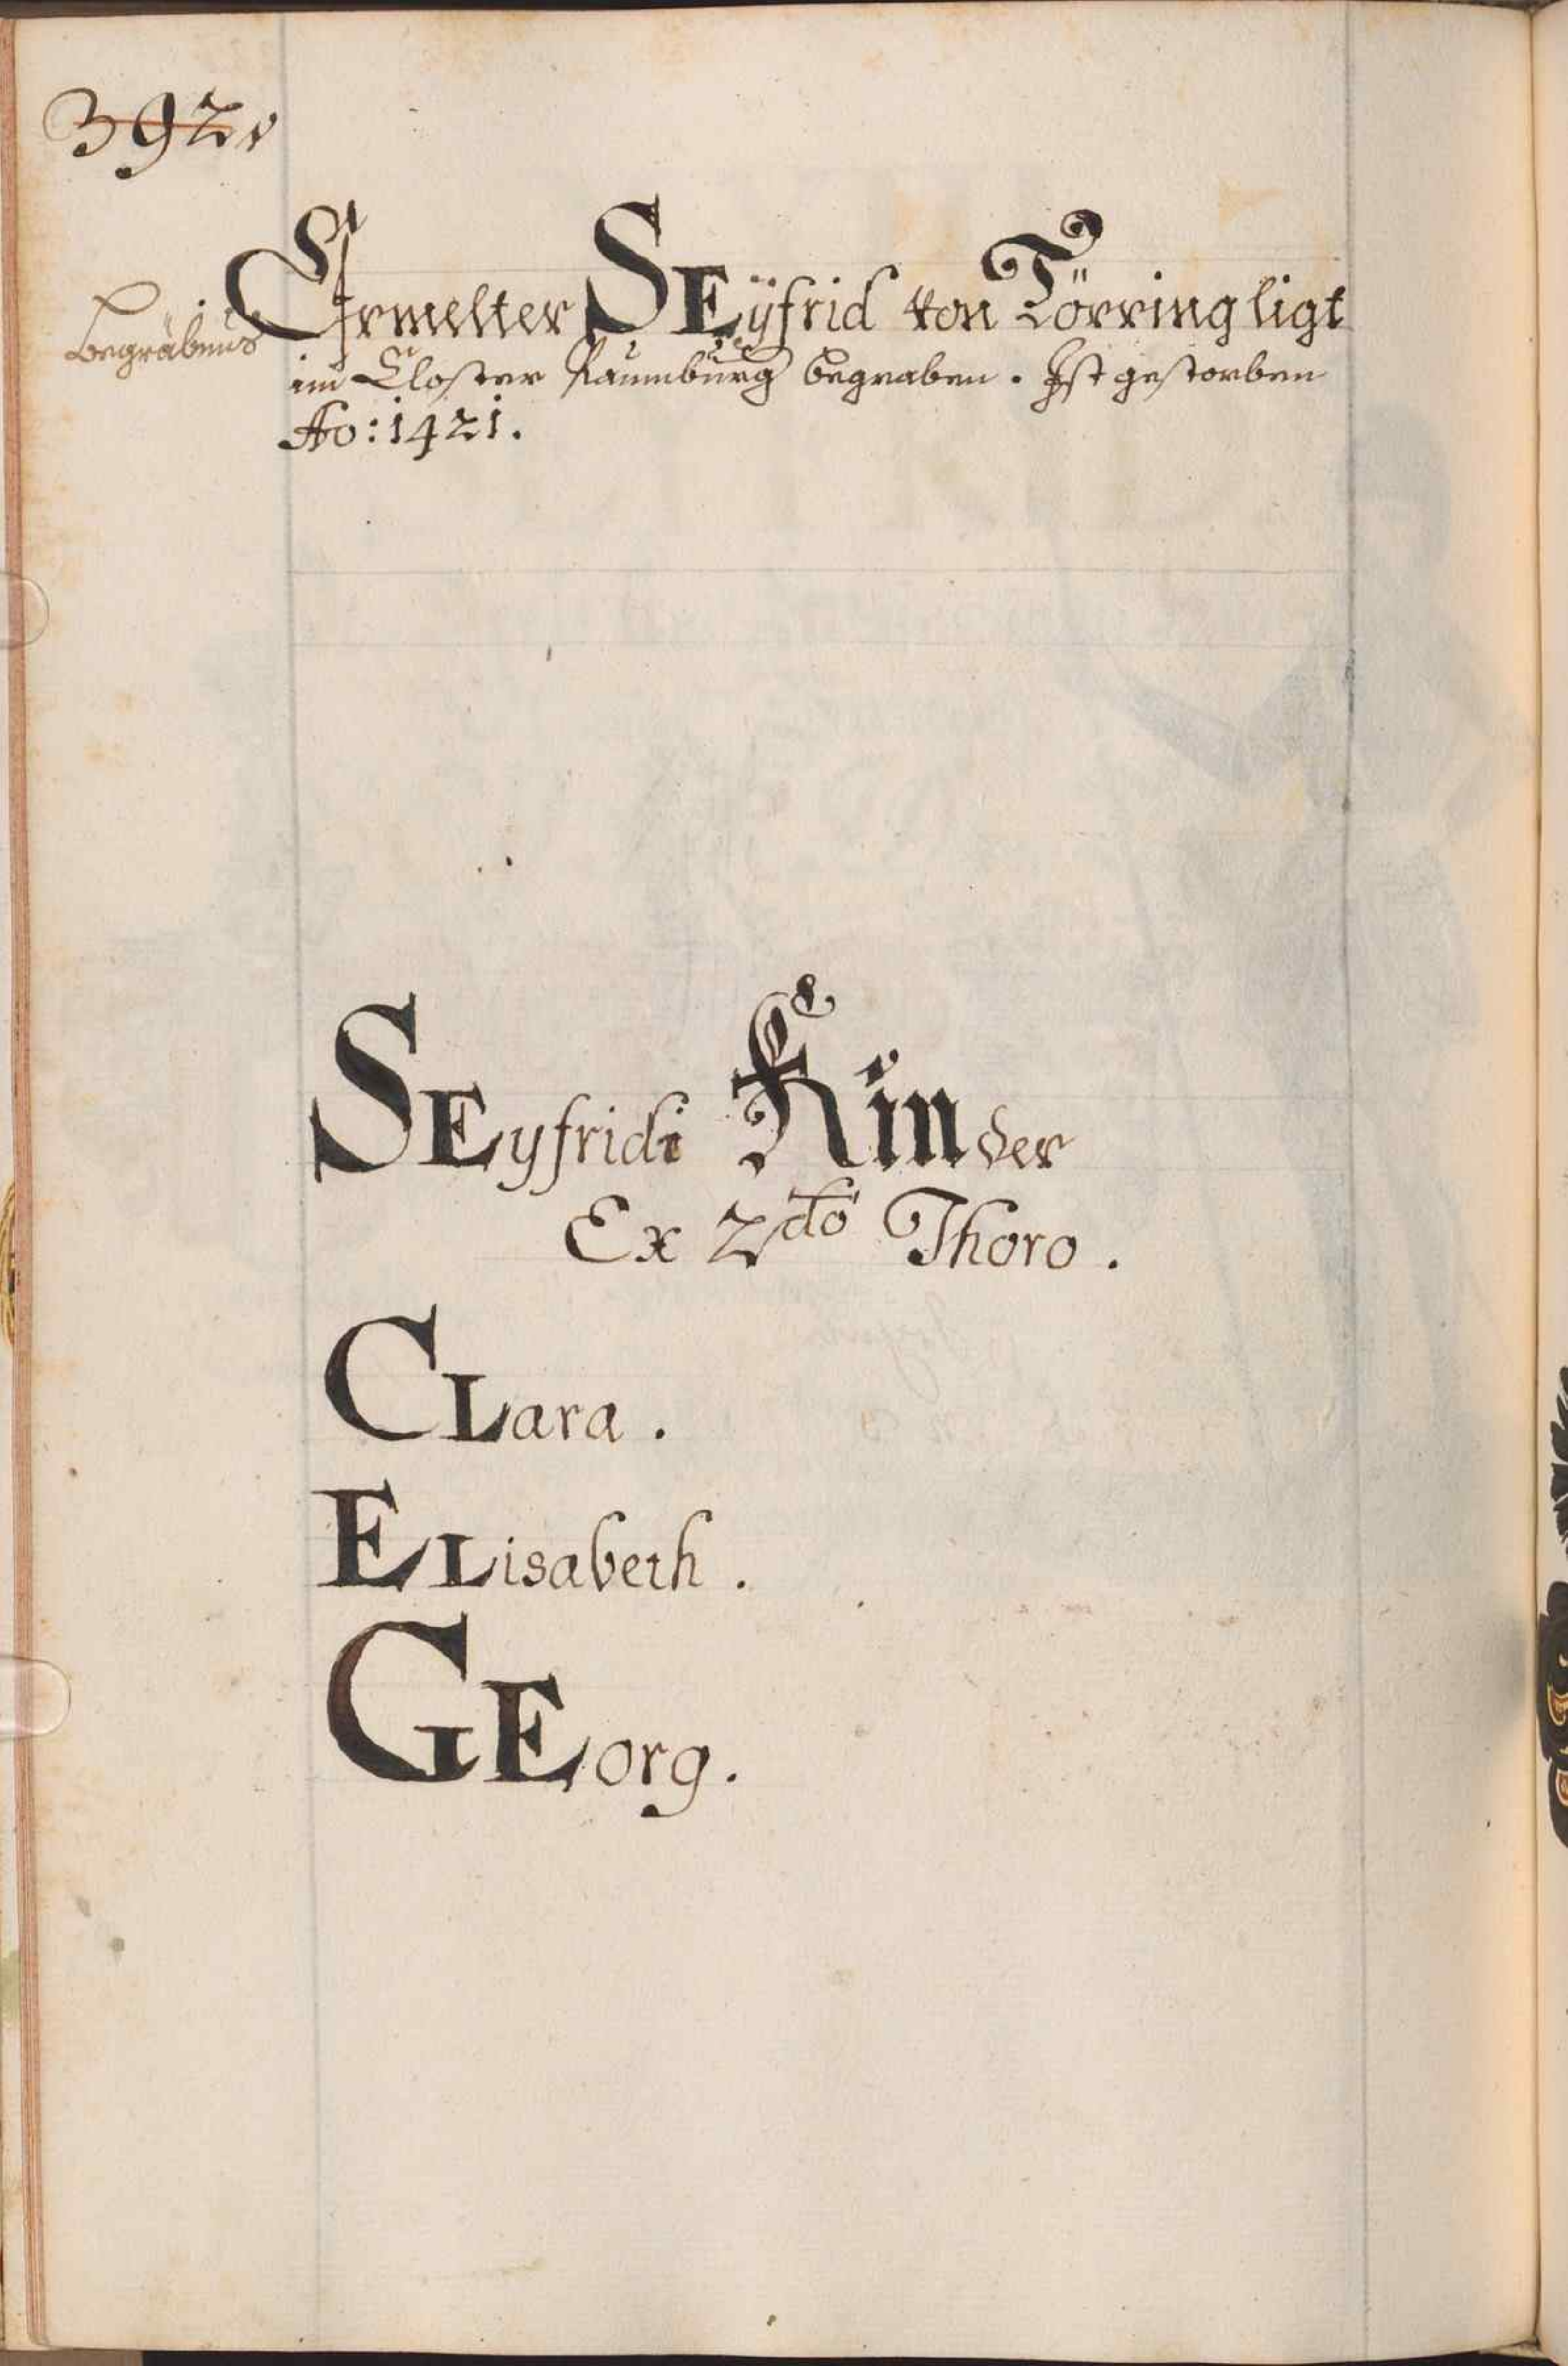 392v
Begräbnus
Ermelter SEÿfrid von Törring ligt
im Closter Raumburg begraben. Ist gestorben
Ao: 1421.
SEyfridi Kinder
Ex 2do Thoro.
CLara.
ELisabeth.
GEorg.